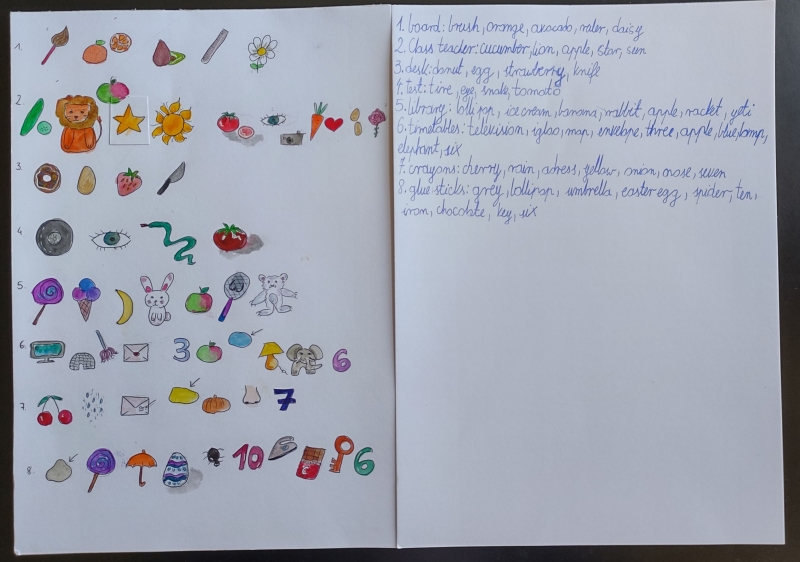 1.
2.
3.
4
5.
6.
3
6
7.
7
8.
10
6
1. board: brush, orange, avocado, ruler, daisy
2. Class teacher: cucumber, lion, apple, star, sun
3. desk: donut, egg, strawberry, knife
4. test: tire, eye, snake, tomato
5. library: lollipop, ice cream, banana, rabbit, apple, racket, yeti
6. timetables: television, igloo, mop, envelope, three, apple, blue, lamp,
elephant, six
7. crayons: cherry, rain, adress, yellow, onion, nose, seven
8. glue sticks: grey, lollipop, umbrella, easter egg, spider, ten,
iron, chocolate, key, six